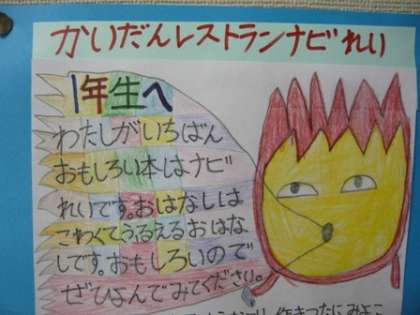 かいだんレストランナビれい
1年生へ
わたしがいちばん
おもしろい本はナビ
れいです。おはなしは
こわくてうるえるおはな
しです。おもしろいので
ぜひよんでみてください。